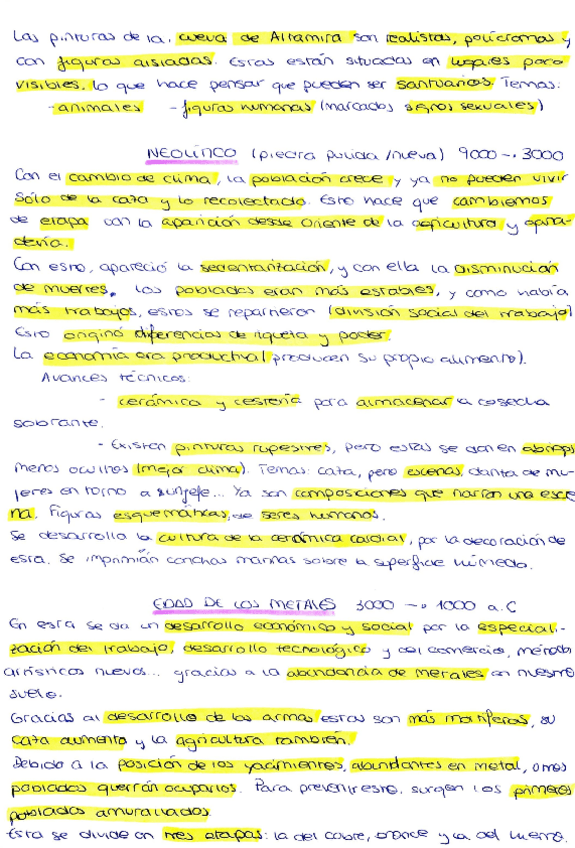 Las pinturas de la, cueva de Altamira son realistas, polícromas y
con figuras aisladas. Estas están situadas en lugares poco
visibles, lo que hace pensar que pueden ser santuarios. Temas:
- animales - figuras humanas (marcados signos sexuales)
NEOLÍTICO (piedra pulida/nueva) 9000 → 3000
Con el cambio de clima, la población crece y ya no pueden vivir
sólo de la caza y lo recolectado. Esto hace que cambiemos
de etapa con la aparición desde Oriente de la agricultura y gana-
dería.
Con esto, apareció la sedentarización, y con ella la disminución
de muertes. Los poblados eran más estables, y como había
más trabajos, estos se repartieron (división social del trabajo)
Esto originó diferencias de riqueza y poder.
La economía era productiva (producen su propio alimento).
Avances técnicos:
- cerámica y cestería para almacenar la cosecha
sobrante.
- Existen pinturas rupestres, pero estas se dan en abrigos
menos ocultos (mejor clima). Temas: caza, pero escenas, danza de mu-
jeres en torno a un jefe... Ya son composiciones que narran una esce
na. Figuras esquemáticas, de seres humanos.
Se desarrolló la cultura de la cerámica cardial, por la decoración de
esta. Se imprimían conchas marinas sobre la superficie húmeda.
EDAD DE LOS METALES 3000 → 1000 a.C
En esta se da un desarrollo económico y social por la especiali-
zación del trabajo, desarrollo tecnológico y del comercio, métodos
artísticos nuevos... gracias a la abundancia de metales en nuestro
suelo.
Gracias al desarrollo de las armas estas son más mortíferas, su
caza aumento y la agricultura también.
Debido a la posición de los yacimientos, abundantes en metal, otros
poblados querrán ocuparlos. Para prevenir esto, surgen los primeros
poblados amurallados.
Esta se divide en tres etapas: la del cobre, bronce y la del hierro.